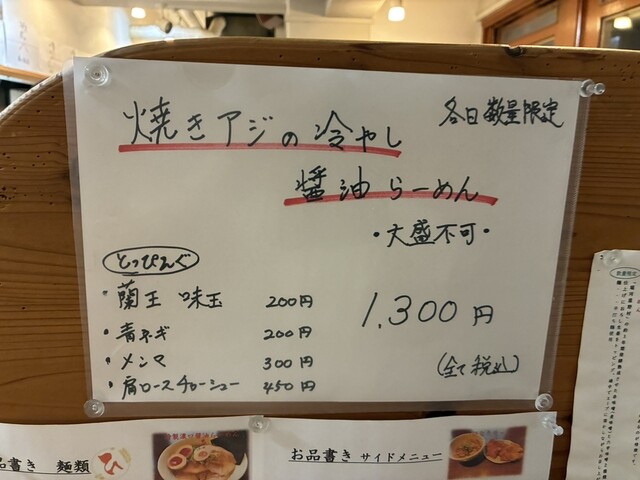 各日数量限定
焼きアジの冷やし
醤油らーめん
・大盛不可・
とっぴんぐ
・蘭王 味玉 200円
・青ネギ 200円
・メンマ 300円
・肩ロースチャーシュー 450円
1,300円
(全て税込)
品書き 麺類
お品書き サイドメニュー